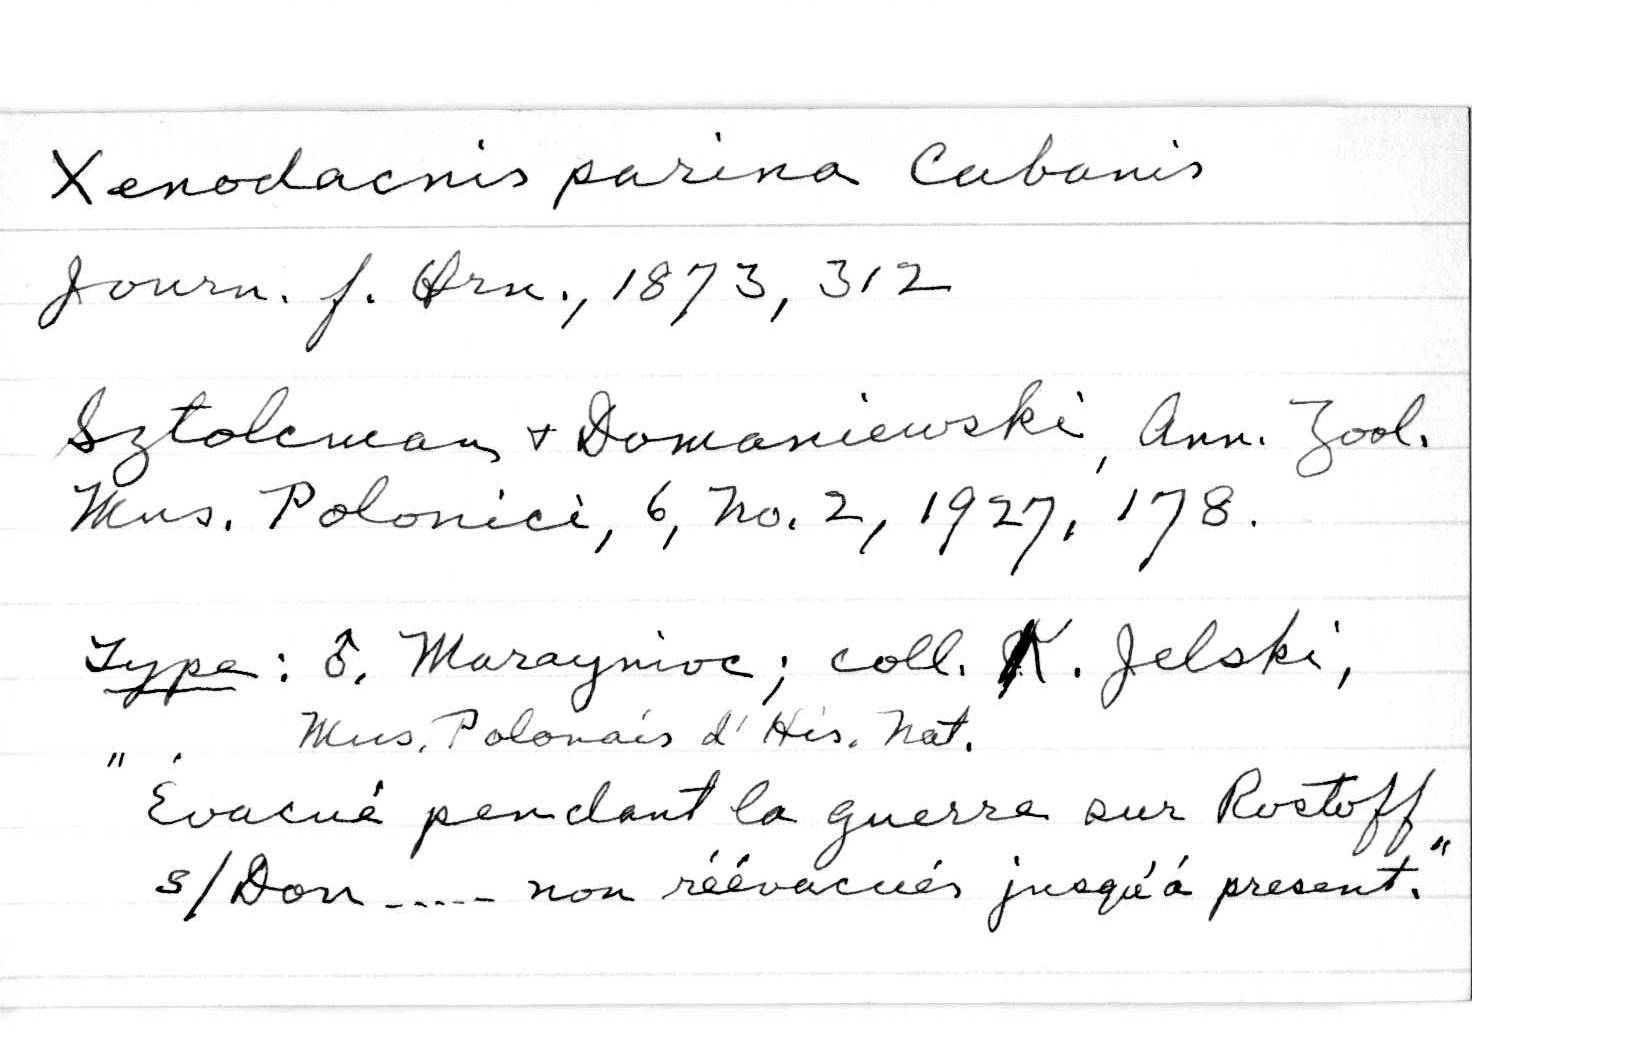 Xenodacnis parina Cabanis
Journ. f. Orn., 1873, 312
Sztolcman + Domaniewski, Ann. Zool.
Mus. Polonici, 6, No. 2, 1927, 178.
Type: ♂, Maraynioc; coll. K. Jelski,
Mus. Polonais d'His. Nat.
"Évacué pendant la guerre sur Rostoff
s/Don ----- non réévacués jusqu'á present."